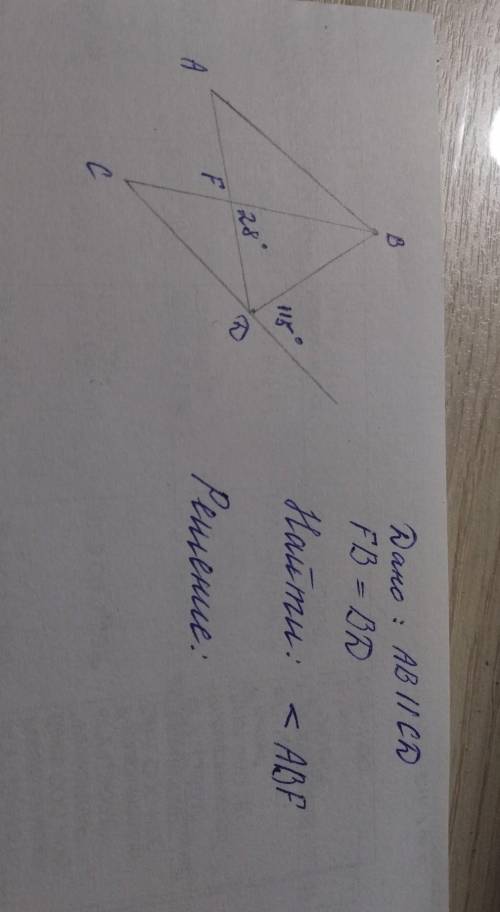 A
B
C
F
28°
115°
D
Дано: AB || CD
FB = BD
Найти: < ABF
Решение: